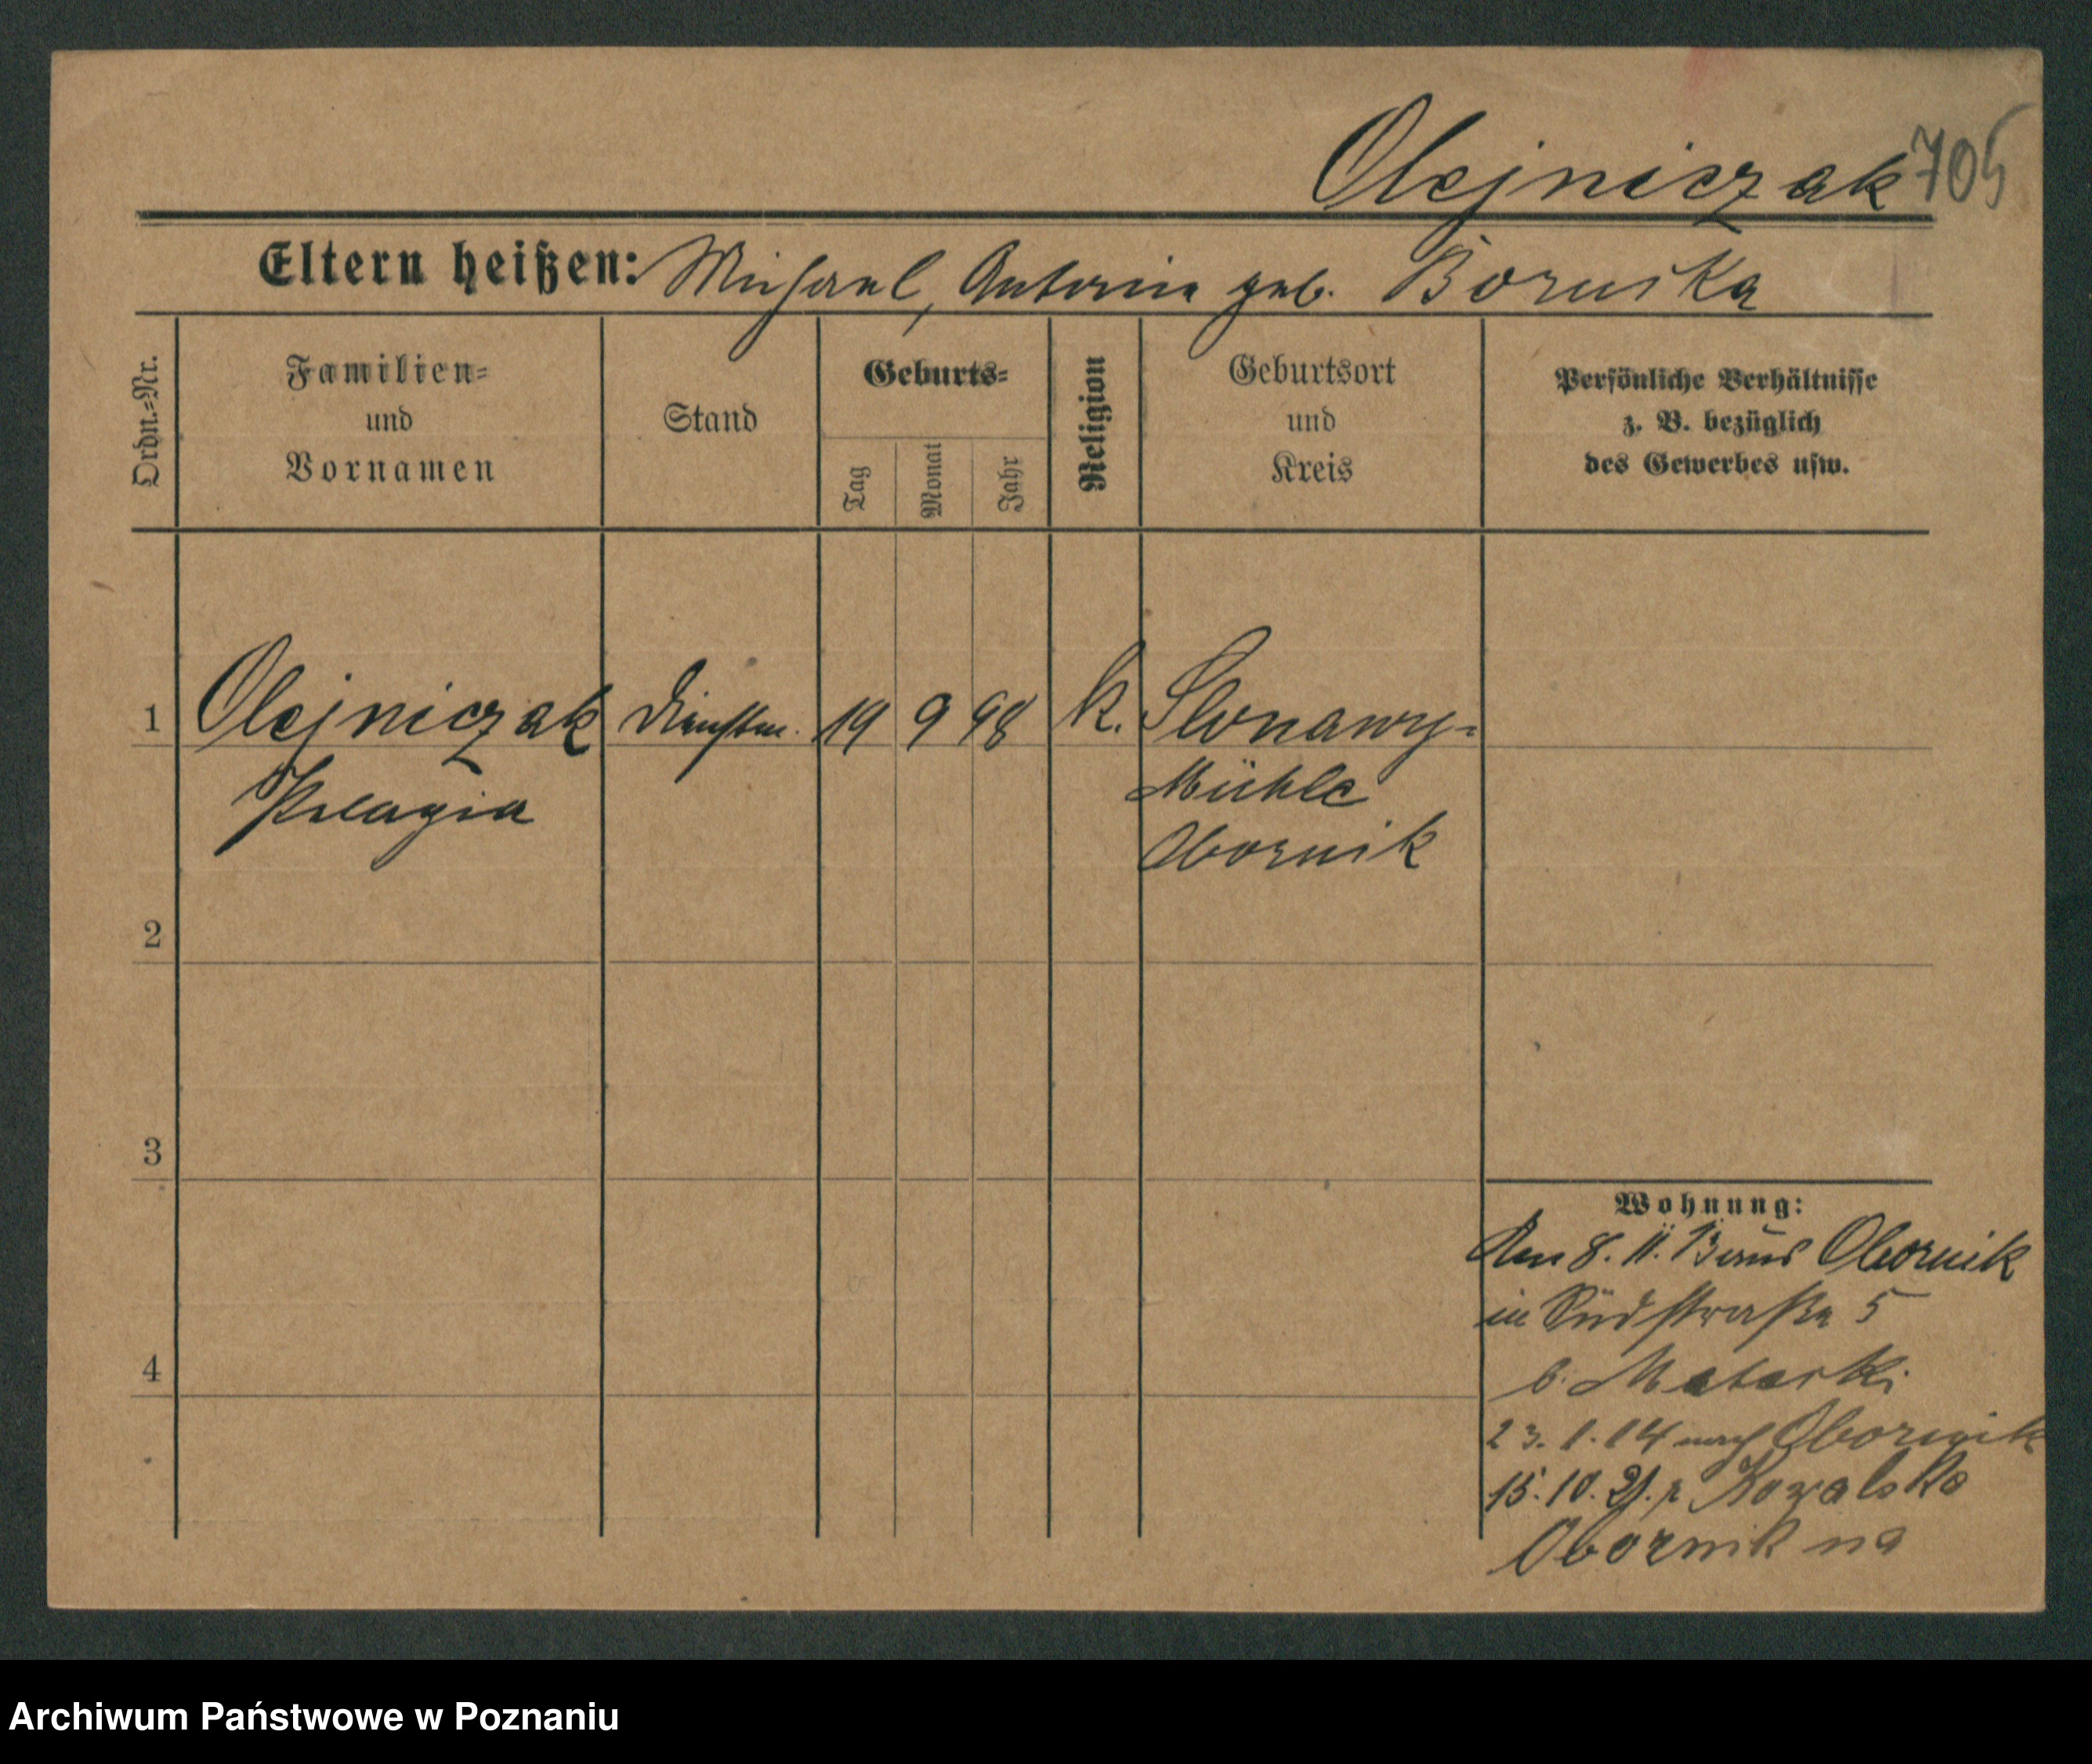 Olejniczak 705
Eltern heißen: Michael, Antonie geb. Boruska
Ordn.=Nr.
Familien=
und
Vornamen
Stand
Geburts=
Tag
Monat
Jahr
Religion
Geburtsort
und
Kreis
Persönliche Verhältnisse
z. B. bezüglich
des Gewerbes usw.
1 Olejniczak Dienstm. 19 9 98 k. Slonawy-
Pelagia Mühle
Obornik
2
3
4
Wohnung:
Am 8. 11. 13 aus Obornik
in Südstraße 5
b.
23. 1. 14 nach Obornik
15. 10. 21. z
Obornik na
Archiwum Państwowe w Poznaniu